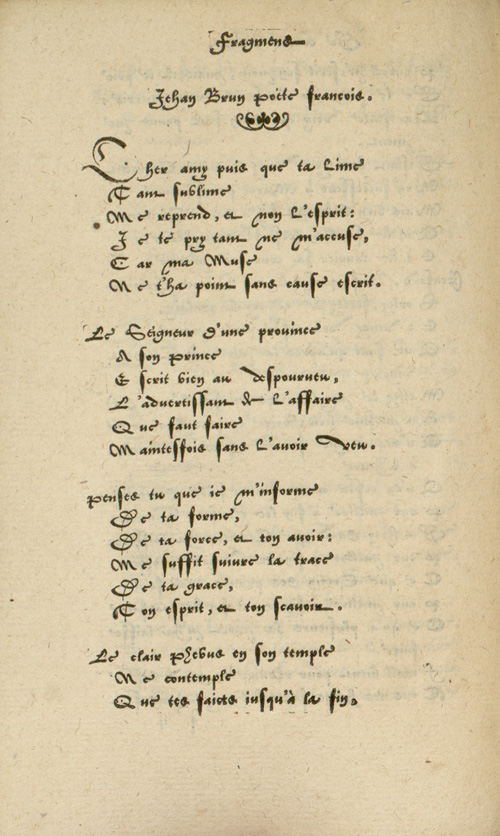 Fragmens
Jehan Brun poëte francois.
Cher amy puis que ta Lime
Tant sublime
Me reprend, et non L'esprit:
Je te pry tant ne m'accuse,
Car ma Muse
Ne t'ha point sans cause escrit.
Le Seigneur d'une province
A son prince
Escrit bien au despourveu,
L'advertissant de L'affaire
Que faut faire
Maintesfois sans L'avoir veu.
Penses tu que ie m'informe
De ta forme,
De ta force, et ton avoir:
Me suffit suivre la trace
De ta grace,
Ton esprit, et ton scavoir.
Le clair Phebus en son temple
Ne contemple
Que tes faicts iusqu'à la fin,